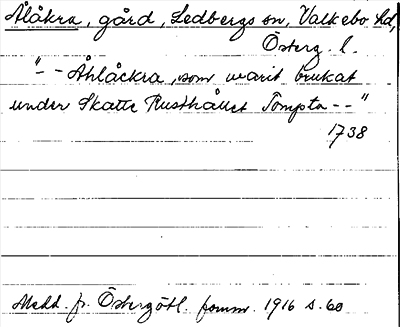 Ålåkra, gård, Ledbergs sn, Valkebo hd,
Österg. l.
"- - Åhlåckra, som warit brukat
under Skatte Rusthållet Tompta - -"
1738
Medd. fr. Östergötl. fornm. 1916 s. 60